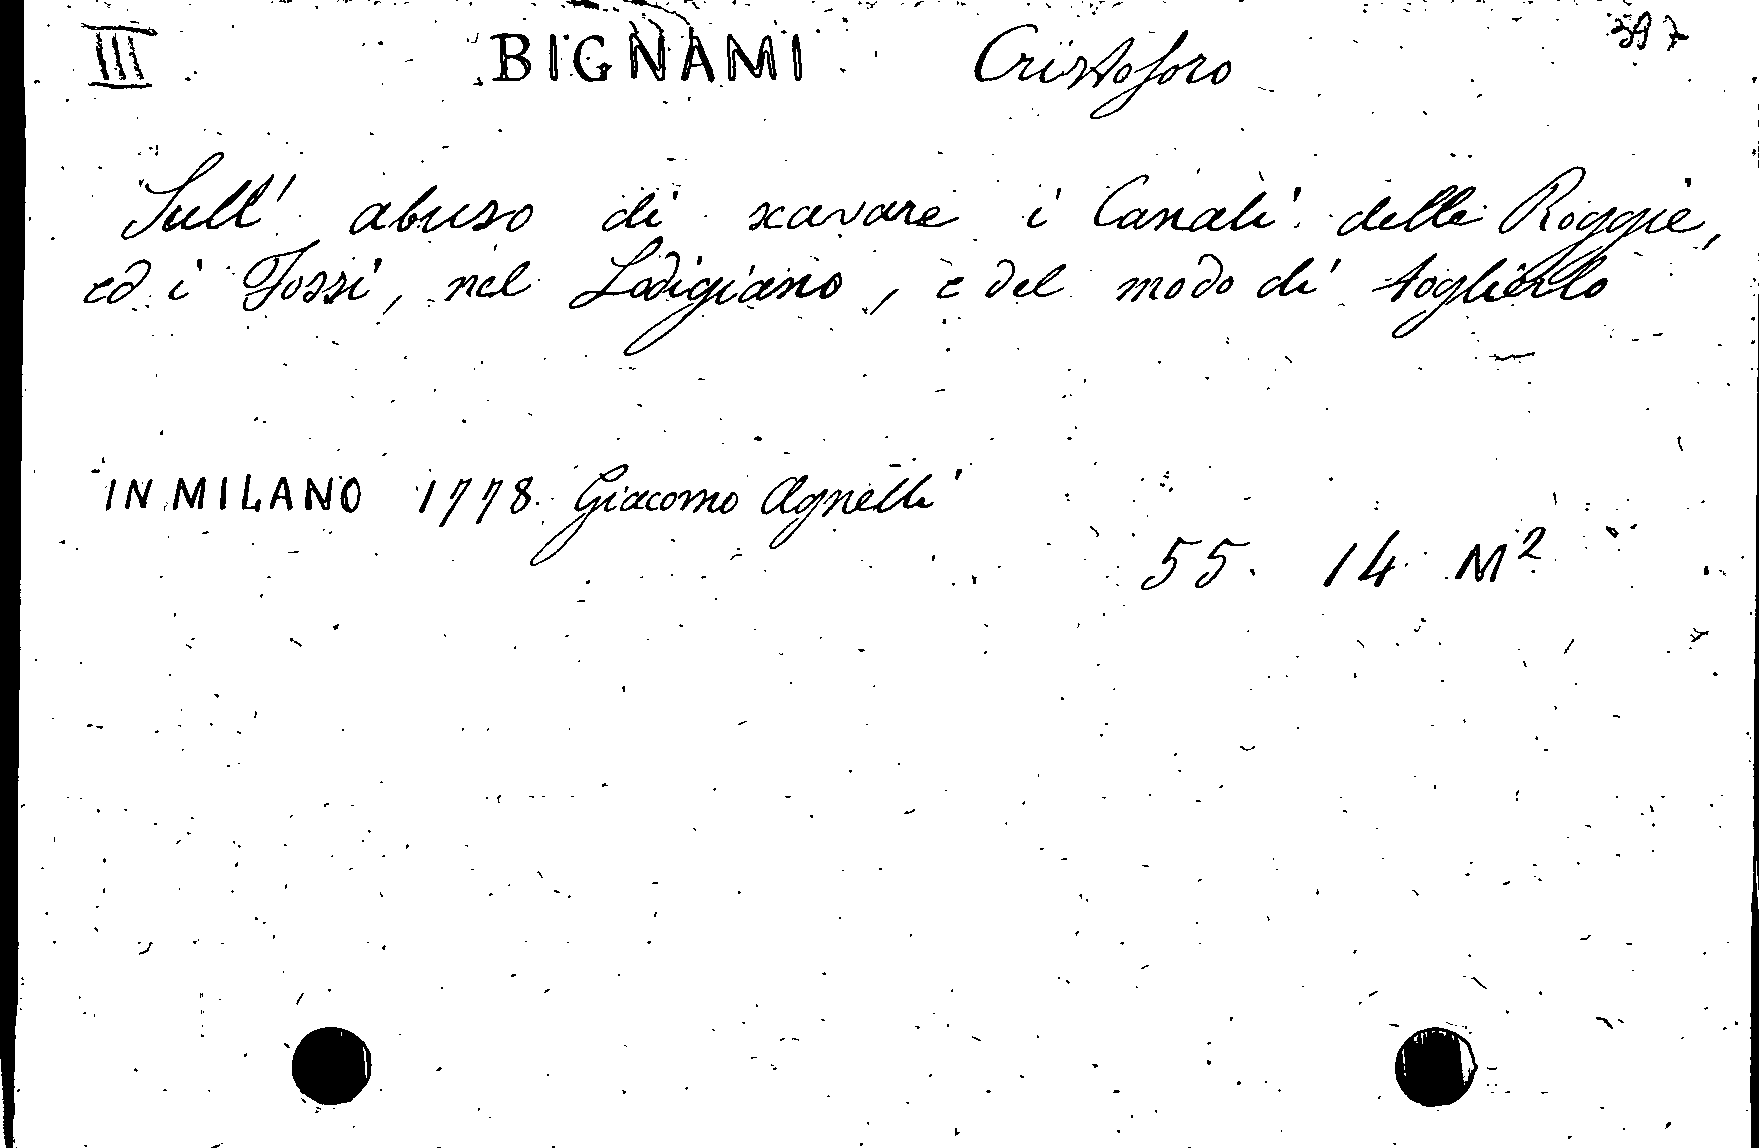 III BIGNAMI Cristoforo 397
Sull' abuso di scavare i Canali delle Roggie,
ed i Fossi, nel Lodigiano, e del modo di toglierlo
IN MILANO 1778 Giacomo Agnelli
55. 14 M²